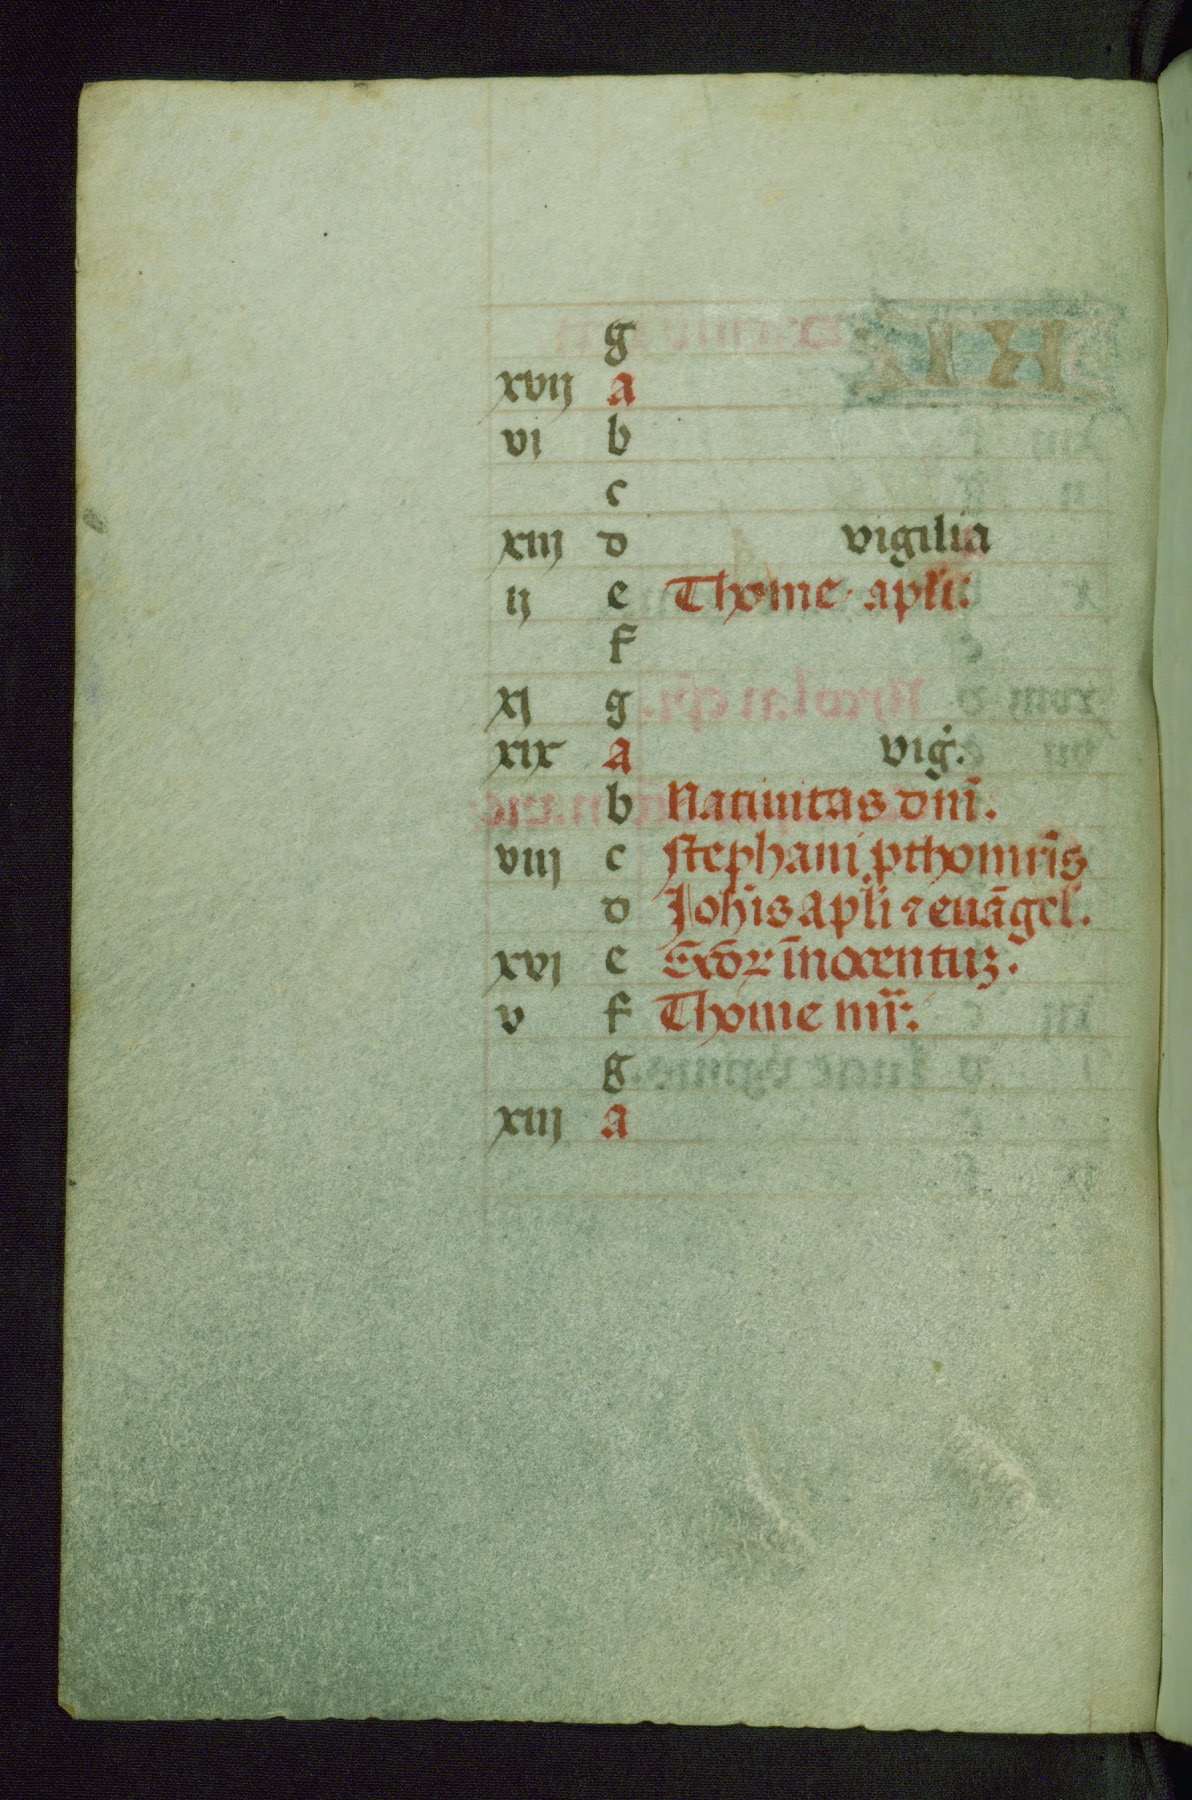 g
xvij a
vi b
c
xiij d vigilia
ij e Thome apl̄i.
f
xj g
xix a vig̉.
b Natiuitas dn̄i.
viij c stephani ꝓthom̄ris
d Joh̄is apl̄i ⁊ euāgel̄.
xvj e Sc̄oꝝ īnocentuȝ.
v f Thome mr̄.
g
xiij a